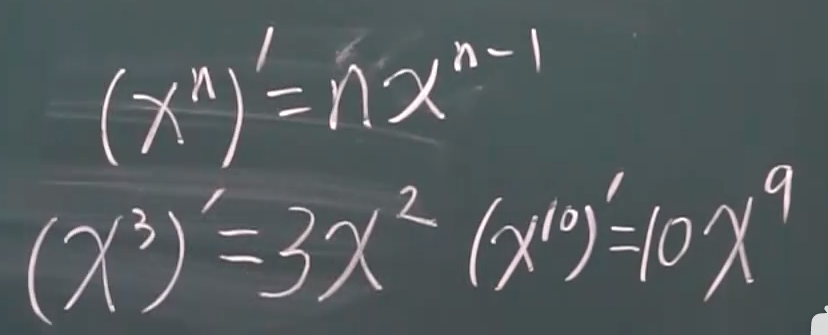 (xⁿ)′ = nxⁿ⁻¹
(x³)′ = 3x² (x¹⁰)′ = 10x⁹